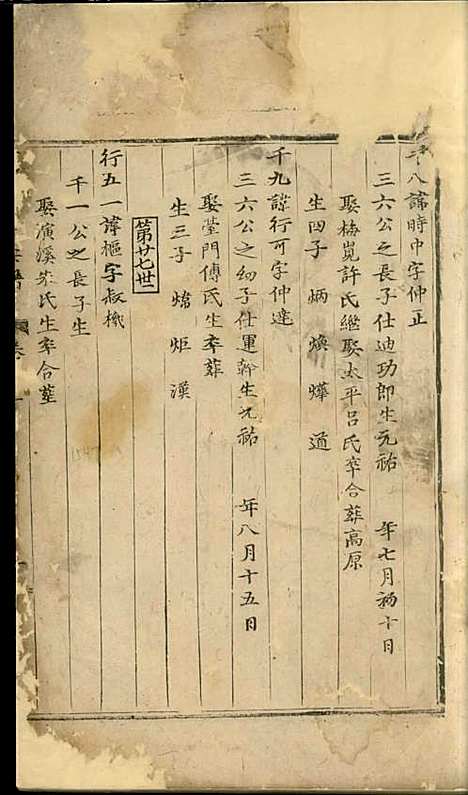 千八諱時中字仲正
三六公之長子仕迪功郎生元祐 年七月初十日
娶梅峴許氏繼娶太平呂氏卒合葬高原
生四子 炳 煥 燁 道
千九諱行可字仲達
三六公之幼子仕運幹生元祐 年八月十五日
娶臺門傅氏生卒葬
生三子 煒 炬 漢
第廿七世
行五一諱樞字叔機
千一公之長子生
娶濂溪朱氏生卒合葬